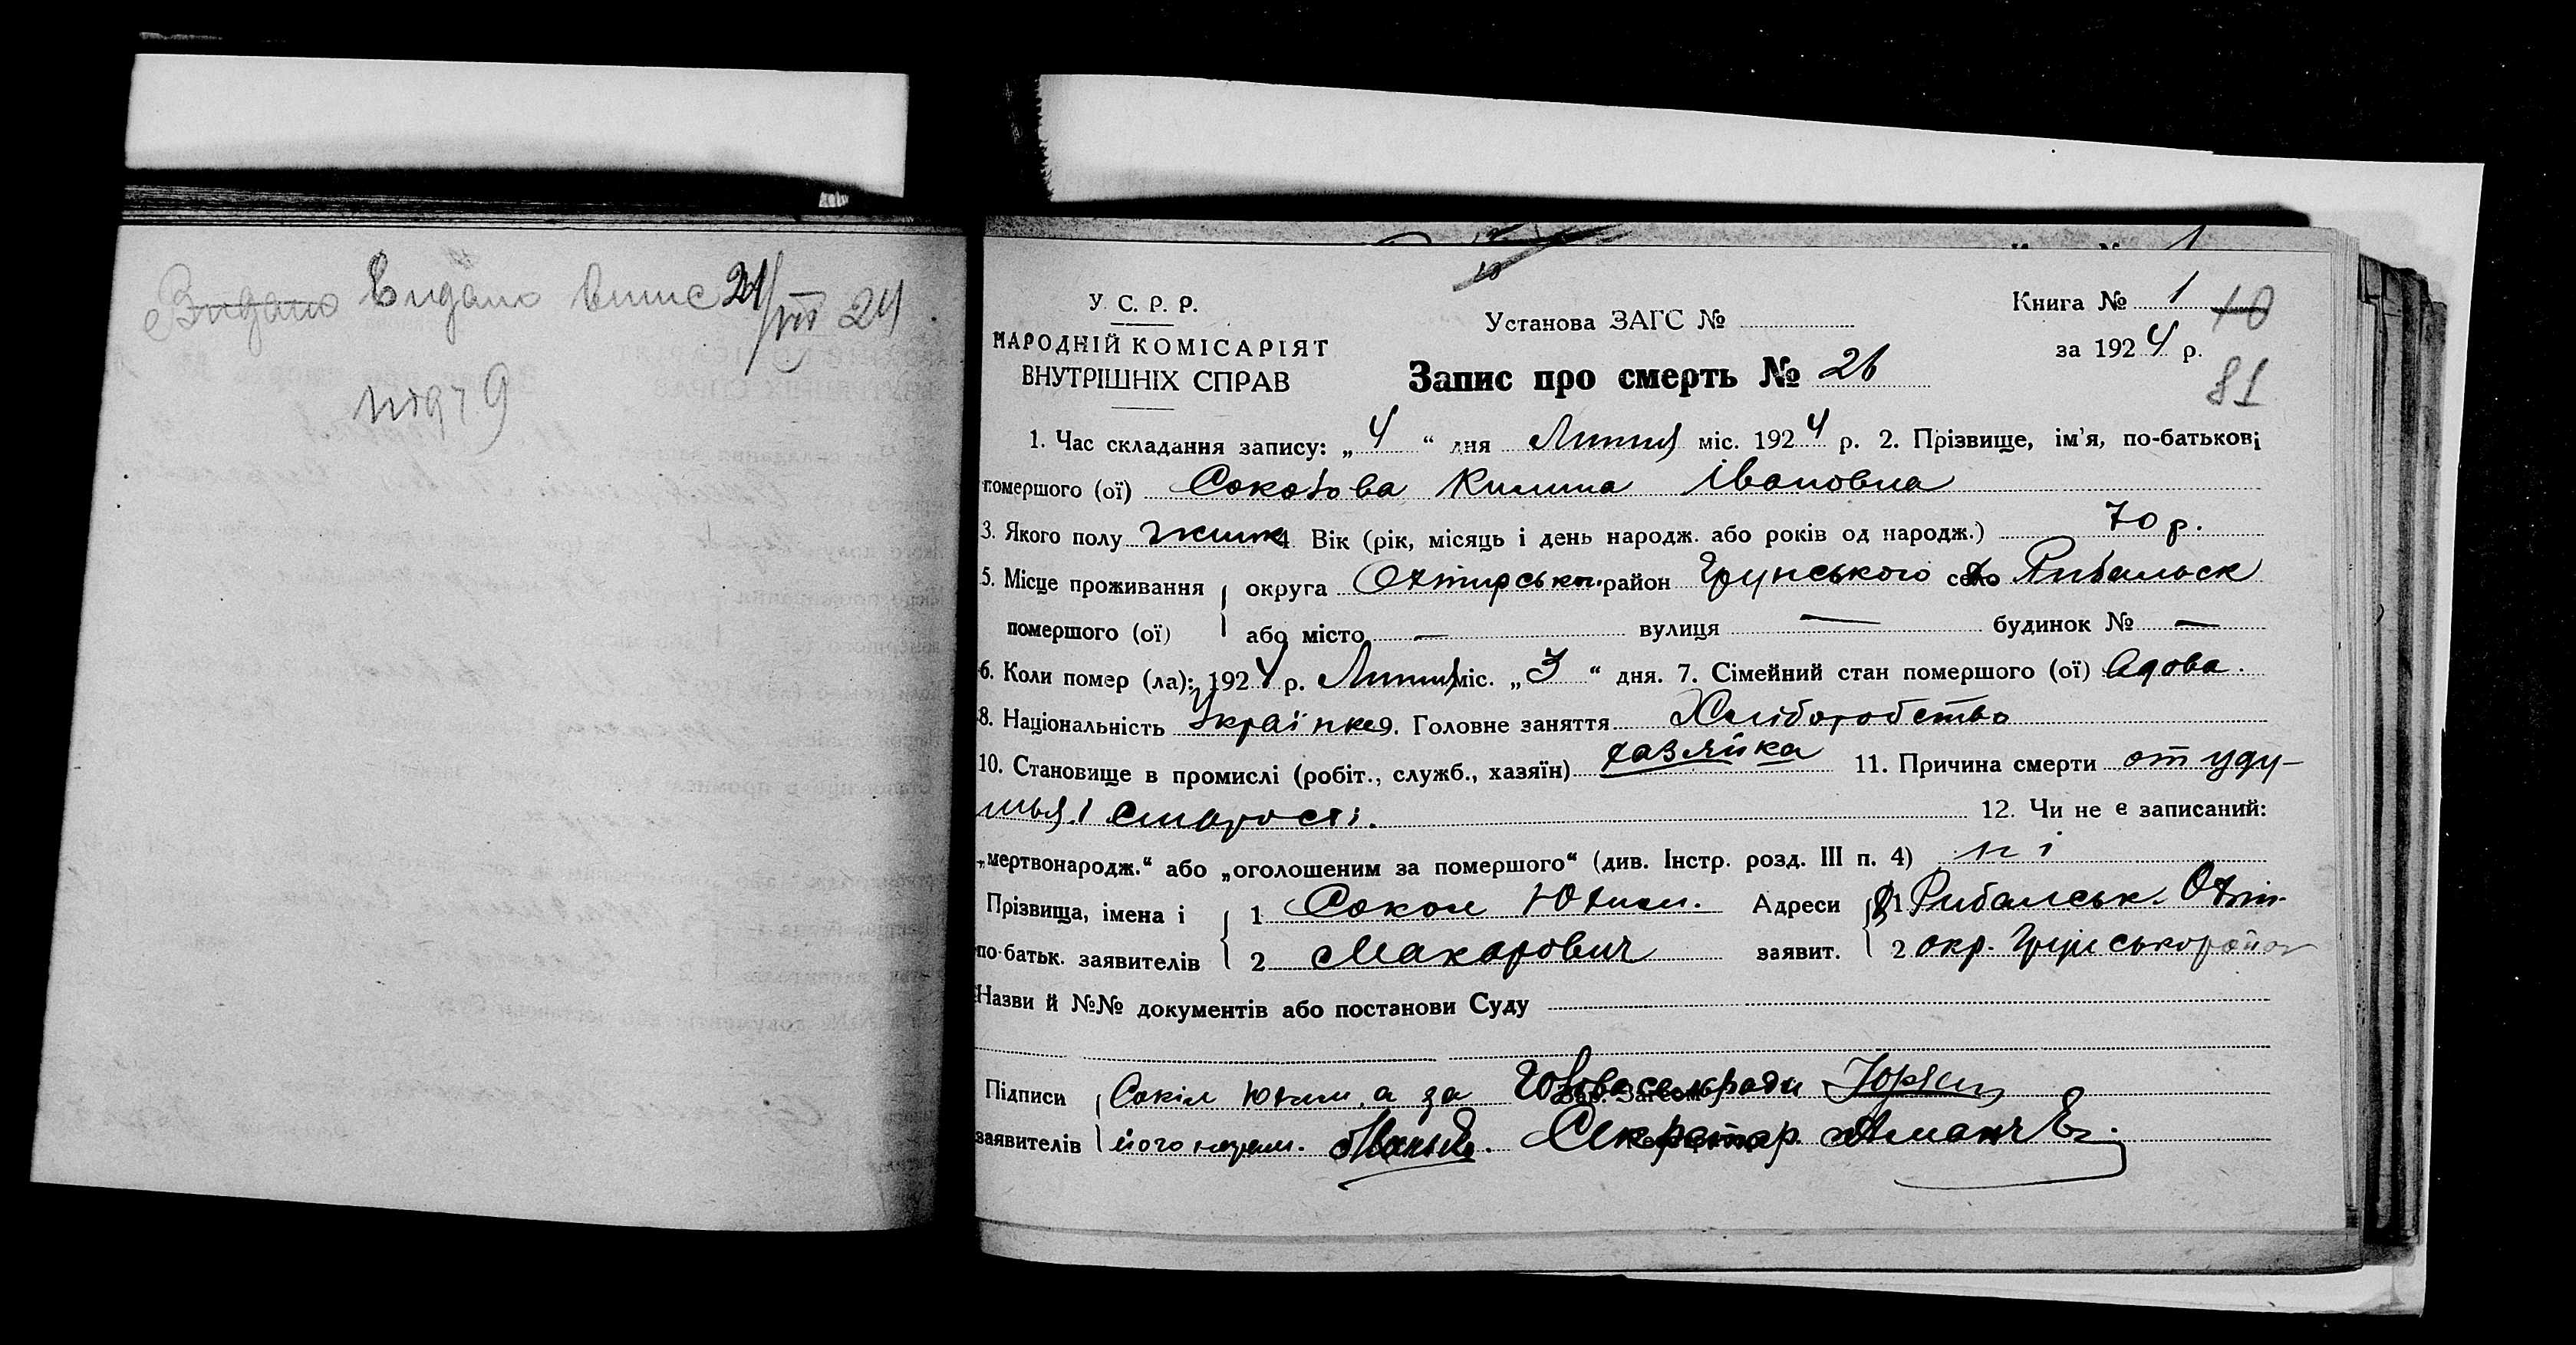 Видано Видано витис 21/VII 24
під ч 9
У. С. Р. Р.
НАРОДНІЙ КОМІСАРІЯТ
ВНУТРІШНІХ СПРАВ
Установа ЗАГС №
Книга № 1 10
за 1924 р.
81
Запис про смерть № 26
1. Час складання запису: „4“ дня Липня міс. 1924 р. 2. Прізвище, ім’я, по-батькові
помершого (ої) Соколова Килина Івановна
3. Якого полу жинк 4. Вік (рік, місяць і день народж. або років од народж.) 70 р.
5. Місце проживання округа Охтирськ. район Грунського село Рибальск
помершого (ої) або місто — вулиця — будинок № —
6. Коли помер (ла): 1924 р. Липня міс. „3“ дня. 7. Сімейний стан помершого (ої) вдова.
8. Національність Українка 9. Головне заняття Хліборобство
10. Становище в промислі (робіт., служб., хазяїн) хазяйка 11. Причина смерти от уду-
шья і старості. 12. Чи не є записаний:
„мертвонародж.“ або „оголошеним за помершого“ (див. Інстр. розд. III п. 4) ні
Прізвища, імена і 1 Сокол Юхим. Адреси 1 Рибальськ. Охтп.
по-батьк. заявителів 2 Макарович заявит. 2 окр. Грунськ района
Назви й №№ документів або постанови Суду
Підписи Сокіл Юхим, а за Голова сельради
заявителів його неграм. Секретар